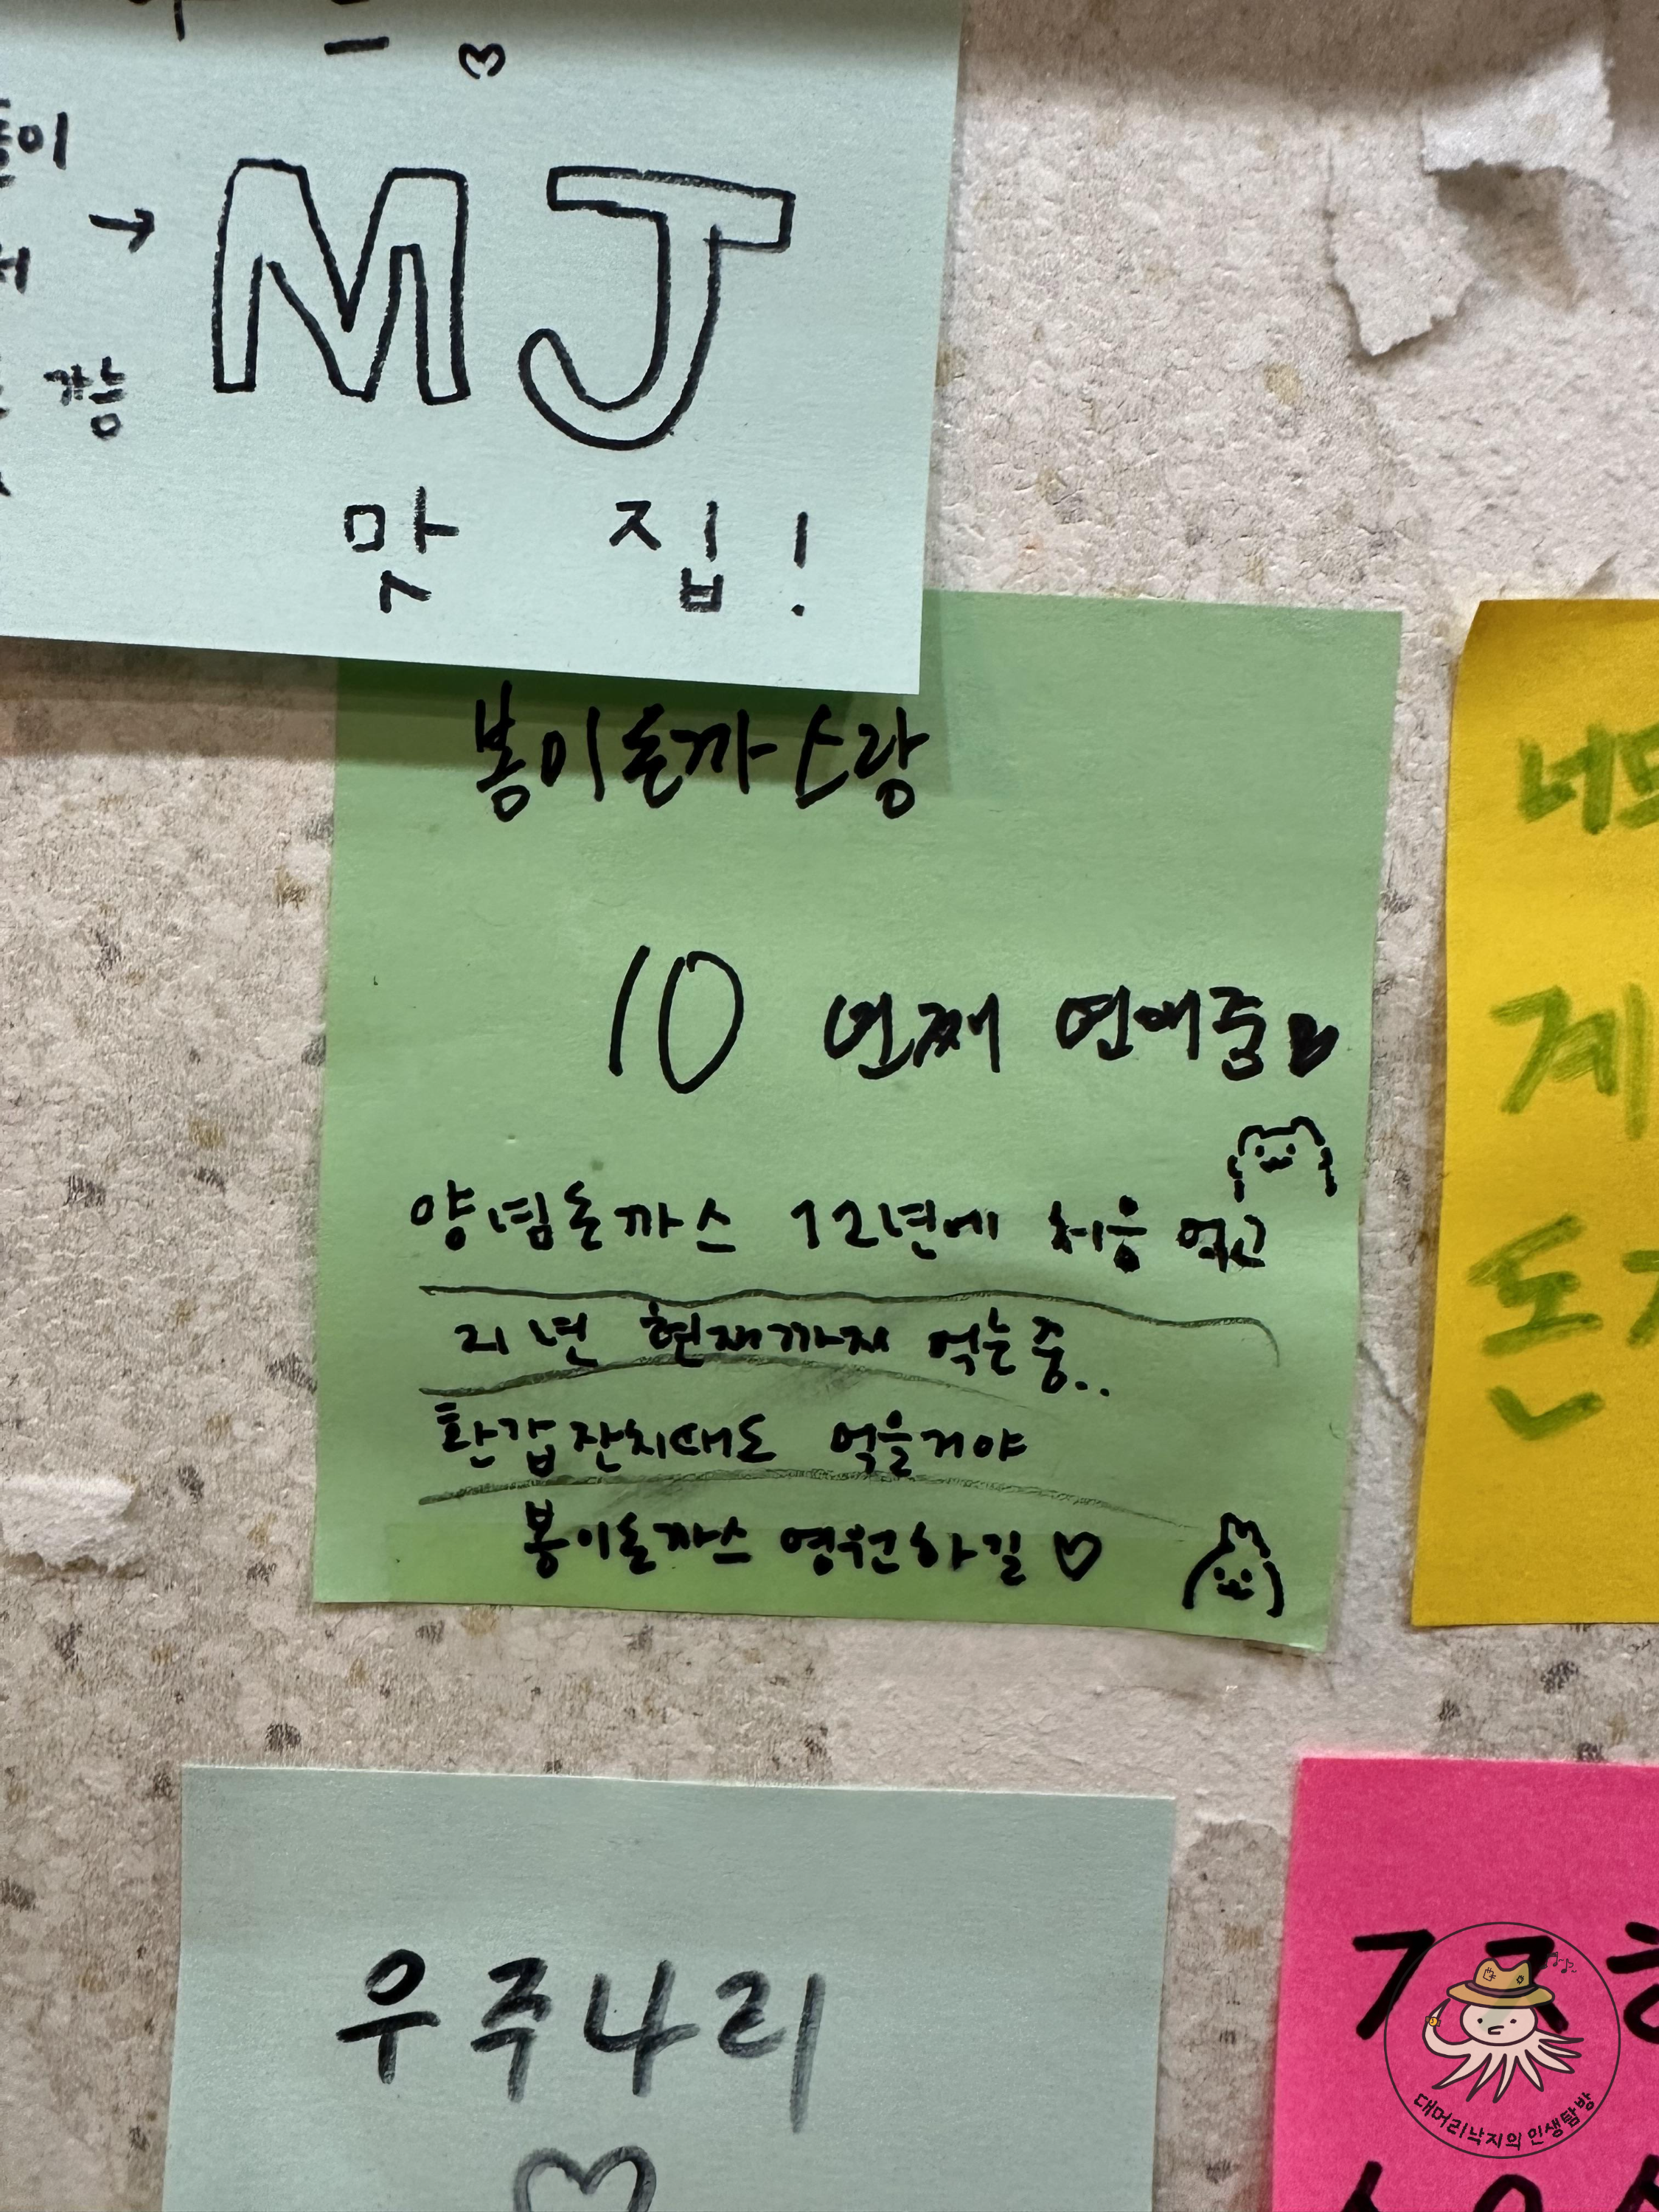 → MJ
가능
맛 집!
봉이돈까스랑
10 번째 연애중
양념돈까스 12년에 처음 먹고
21년 현재까지 먹는중..
환갑잔치때도 먹을거야
봉이돈까스 영원하길♡
계
돈
우주나리
대머리낙지의 인생탐방